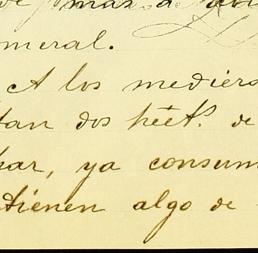 de mas a
meral.
A los mediers
tan dos héct.s de
har, ya consum
tienen algo de